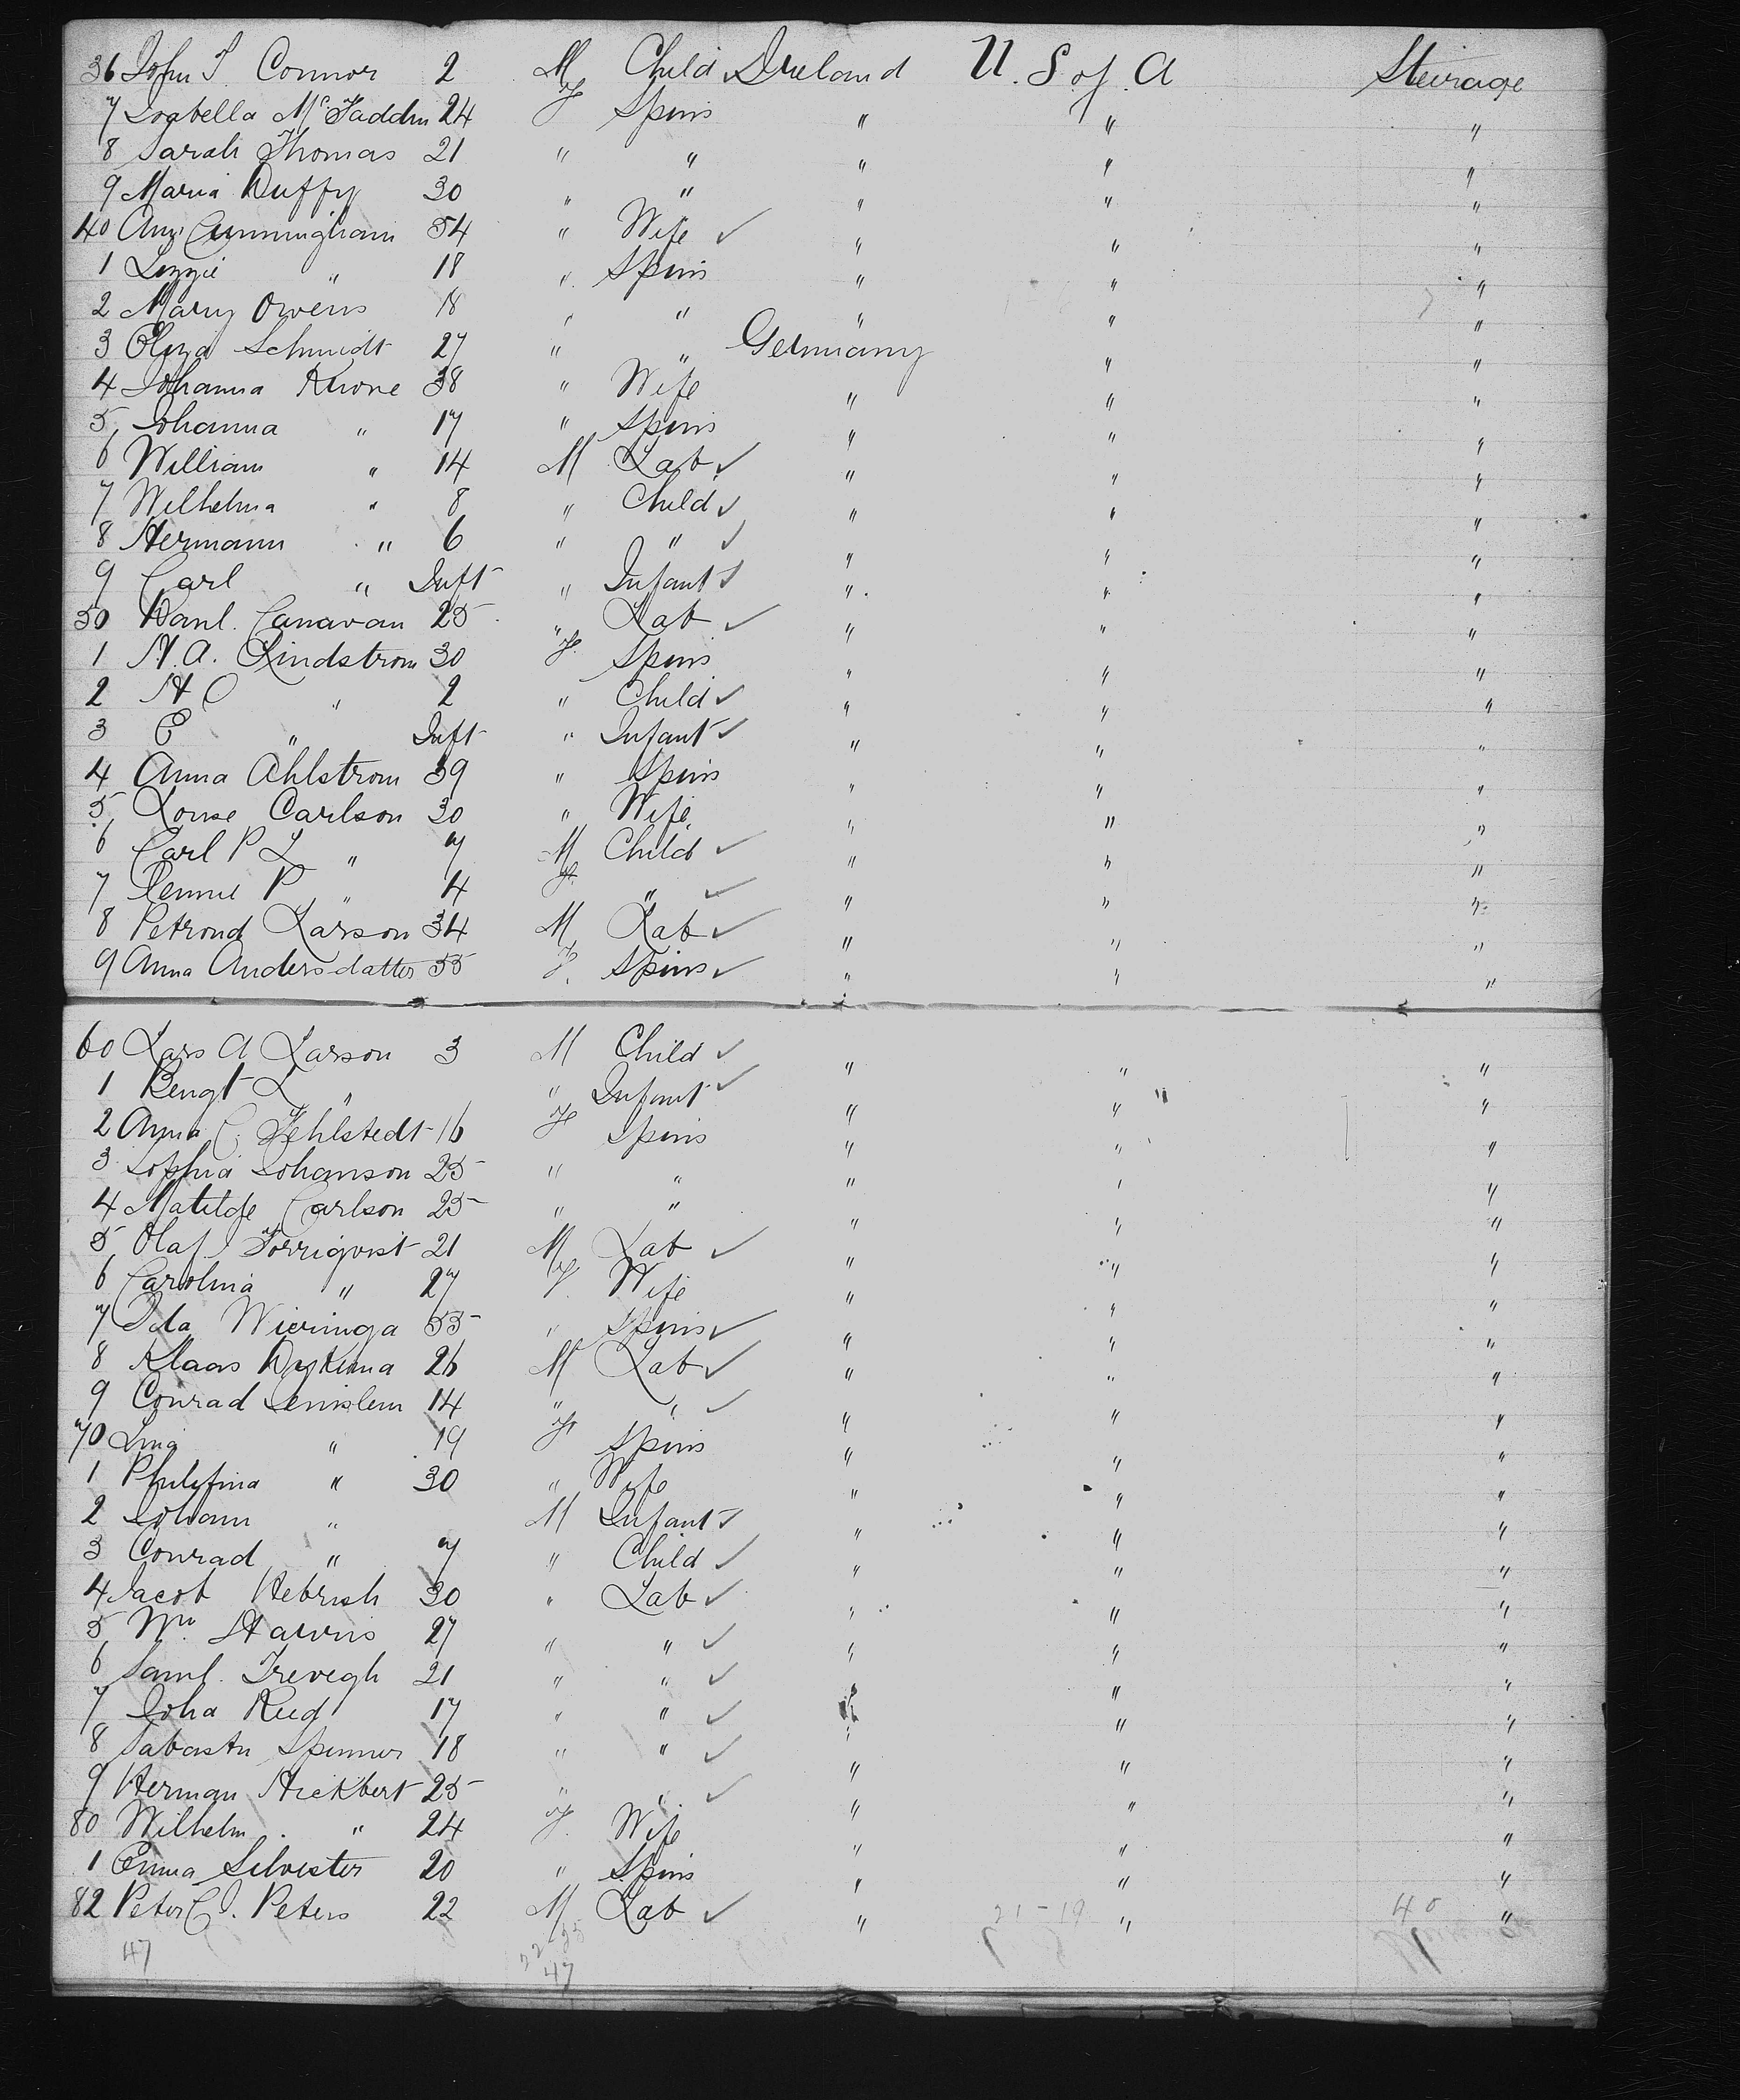 36 John T. Connor 2 M Child ✓ Ireland U. S of A Steirage
7 Isabella McFaddin 24 F Spins " " "
8 Sarah Thomas 21 " " " " "
9 Maria Duffy 30 " " " " "
40 Ann Cunningham 54 " Wife ✓ " " "
1 Lizzie " 18 " Spins " " "
2 Mary Owens 18 " " " " "
3 Eliza Schmidt 27 " " Germany " "
4 Johanna Krone 38 " Wife " " "
5 Johanna " 17 " Spins " " "
6 William " 14 M Lab ✓ " " "
7 Wilhelma " 8 " Child ✓ " " "
8 Hermann " 6 " " ✓ " " "
9 Carl " Inft " Infant ✓ " " "
50 Danl. Canavan 25 " Lab ✓ " " "
1 H. A. Lindstrom 30 F. Spins " " "
2 H C " 2 " Child ✓ " " "
3 E " Inft " Infant ✓ " " "
4 Anna Ahlstrom 39 " Spins " " "
5 Louse Carlson 30 " Wife " " "
6 Carl P L " 7 M Child ✓ " " "
7 P " 4 F. " ✓ " " "
8 Petrond Larson 34 M Lab ✓ " " "
9 Anna Andersdatter 55 F. Spins ✓ " " "
60 Lars A Larson 3 M Child ✓ " " "
1 Bengt L " " Infant ✓ " " "
2 Anna C. Fehlstedt 16 F Spins " " "
3 Sophia Johanson 25 " " " " "
4 Matilde Carlson 25 " " " " "
5 Olaf J Torriqvist 21 M Lab ✓ " " "
6 Carolina " 27 F. Wife " " "
7 Ida Wieringa 55 " Spins ✓ " " "
8 Klaas Dykema 26 M Lab ✓ " " "
9 Conrad 14 " " ✓ " " "
70 Lina " 19 F Spins " " "
1 Philifina " 30 " Wife " " "
2 Johann " M Infant ✓ " " "
3 Conrad " 7 " Child ✓ " " "
4 Jacob Hebrish 30 " Lab ✓ " " "
5 Wm. Harris 27 " " ✓ " " "
6 Saml. Trevegh 21 " " ✓ " " "
7 Joha Reed 17 " " ✓ " " "
8 Sabastn Spinner 18 " " ✓ " " "
9 Herman Hickbert 25 " " ✓ " " "
80 Wilhelm " 24 F. Wife " " "
1 Emma Silvester 20 " Spins " " "
82 Peter C J. Peters 22 M Lab ✓ " " "
21-19 40
47 22-25
47